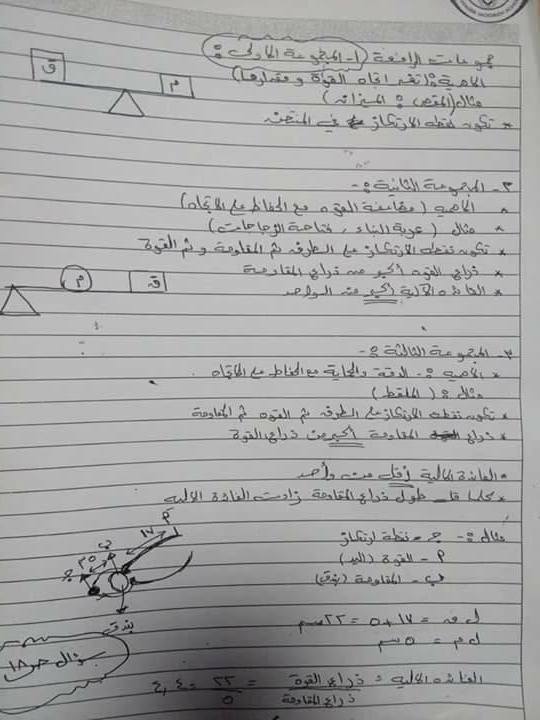 مجموعات الرافعة ١- المجموعة الأولى :
الخاصية : تغير اتجاه القوة ومقدارها)
مثال (المقص ، الميزان)
* تكون نقطة الارتكاز في المنتصف
ق
م
٢- المجموعة الثانية :-
الخاصية (مضاعفة القوة مع الحفاظ على الاتجاه)
* مثال (عربة البناء ، فتاحة الزجاجات)
* تكون نقطة الارتكاز على الطرف ثم المقاومة وثم القوة
* ذراع القوة أكبر من ذراع المقاومة
* الفائدة الآلية أكبر من الواحد
م
ق
٣- المجموعة الثالثة :-
* الخاصية :- الدقة والحماية مع الحفاظ على الاتجاه
مثال : (الملقط)
* تكون نقطة الارتكاز على الطرف ثم القوة ثم المقاومة
* ذراع المقاومة أكبر من ذراع القوة
* الفائدة الآلية أقل من واحد
* كلما قل طول ذراع المقاومة زادت الفائدة الآلية
مثال :- جـ - نقطة ارتكاز
أ - القوة (اليد)
ب - المقاومة (بندق)
أ
١٧
ب
٥
جـ
بندق
ل ق = ١٧ + ٥ = ٢٢ سم
ل م = ٥ سم
الفائدة الآلية = ذراع القوة / ذراع المقاومة = ٢٢ / ٥ = ٤,٤
سؤال ص ١٨